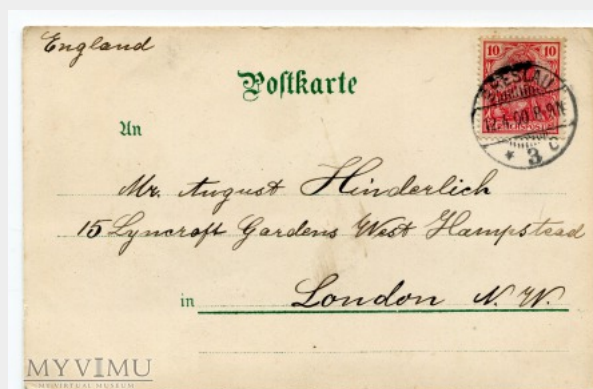 England
10 10
Postkarte
BRESLAU
* 3 c
An
Mr. August Hinderlich
15 Lyncroft Gardens West Hampstead
in London N. W.
MYVIMU
MY VIRTUAL MUSEUM